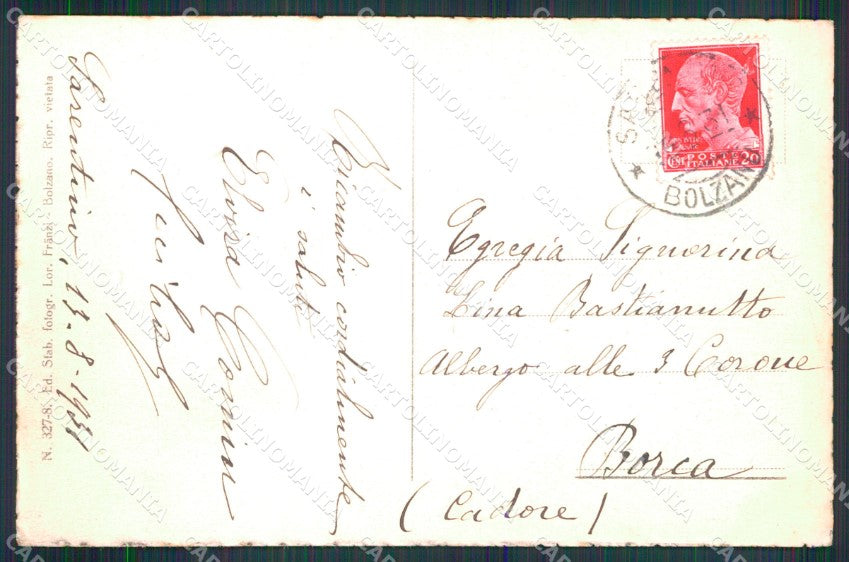 N. 327-8. Ed. Stab. fotogr. Lor. Fränzl - Bolzano. Ripr. vietata
Sarentino, 13-8-1931
Ricambio cordialmente
i saluti
Elvisa Comin
BOLZANO
POSTE
ITALIANE
CENT 20
Egregia Signorina
Lina Bastianutto
Albergo alle 3 Corone
Borca
(Cadore)
CARTOLINOMANIA